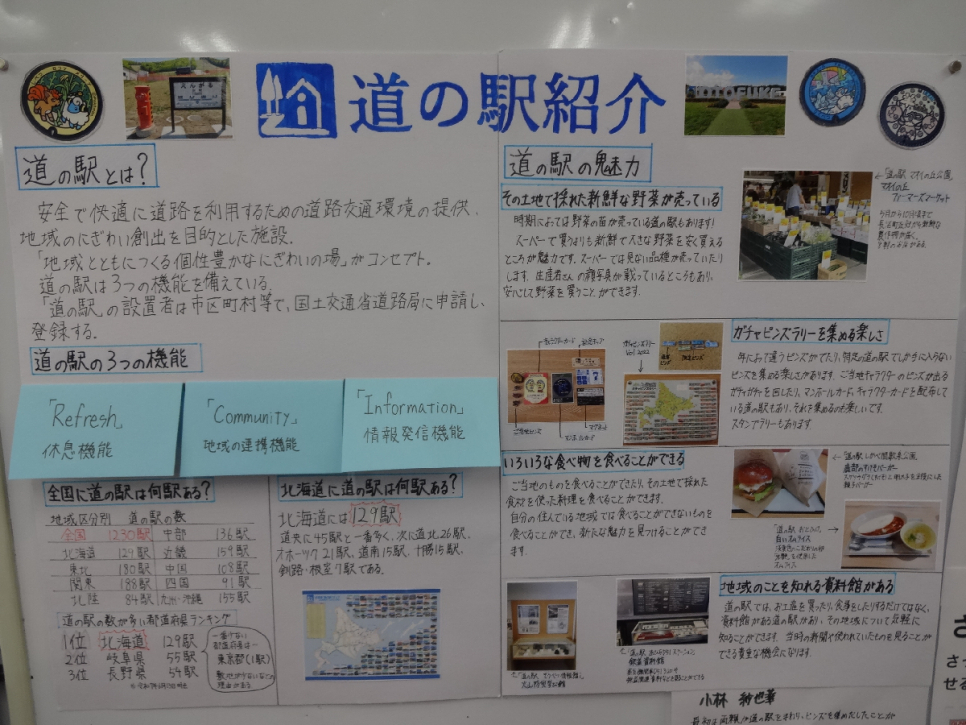 道の駅紹介
道の駅とは?
安全で快適に道路を利用するための道路交通環境の提供、
地域のにぎわい創出を目的とした施設。
「地域とともにつくる個性豊かなにぎわいの場」がコンセプト。
道の駅は3つの機能を備えている。
「道の駅」の設置者は市区町村等で、国土交通省道路局に申請し
登録する。
道の駅の3つの機能
「Refresh」
休息機能
「Community」
地域の連携機能
「Information」
情報発信機能
全国に道の駅は何駅ある?
地域区分別 道の駅の数
全国 1230駅 中部 136駅
北海道 129駅 近畿 159駅
東北 180駅 中国 108駅
関東 188駅 四国 91駅
北陸 84駅 九州・沖縄 155駅
道の駅の数が多い都道府県ランキング
1位 北海道 129駅
2位 岐阜県 55駅
3位 長野県 54駅
一番少ない
都道府県は…
東京都(1駅)
敷地が少ないなどの
理由がある。
北海道に道の駅は何駅ある?
北海道には129駅
道央に45駅と一番多く、次に道北26駅、
オホーツク21駅、道南15駅、十勝15駅、
釧路・根室7駅である。
道の駅の魅力
その土地で採れた新鮮な野菜が売っている
時期においては野菜の苗が売っている道の駅もあります!
スーパーで買うよりも新鮮で大きな野菜を安く買える
ところが魅力です。スーパーでは見ない品種が売っていたり
します。生産者さんの顔写真が載っているところもあり、
安心して野菜を買うことができます。
ガチャピンズラリーを集める楽しさ
年によって違うピンズがでたり、特定の道の駅でしか手に入らない
ピンズを集める楽しさがあります。ご当地キャラクターのピンズが出る
ガチャガチャを回したり、マンホールカード、キャラクターカードを配布して
いる道の駅もあり、それを集めるのも楽しいです。
スタンプラリーもあります。
いろいろな食べ物を食べることができる
ご当地のものを食べることができたり、その土地で採れた
食材を使った料理を食べることができます。
自分の住んでいる地域では食べることができないものを
食べることができ、新たな魅力を見つけることができ
ます。
地域のことを知れる資料館がある
道の駅では、お土産を買ったり、食事をしたりするだけではなく、
資料館がある道の駅があり、その地域について身近に
知ることができます。当時の新聞や使われていたものを見ることが
できる貴重な機会になります。